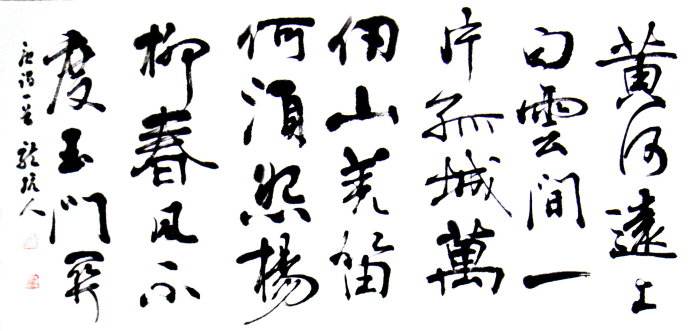 黄河遠上
白雲間一
片孤城萬
仞山羌笛
何須怨楊
柳春風不
度玉門關
唐詩